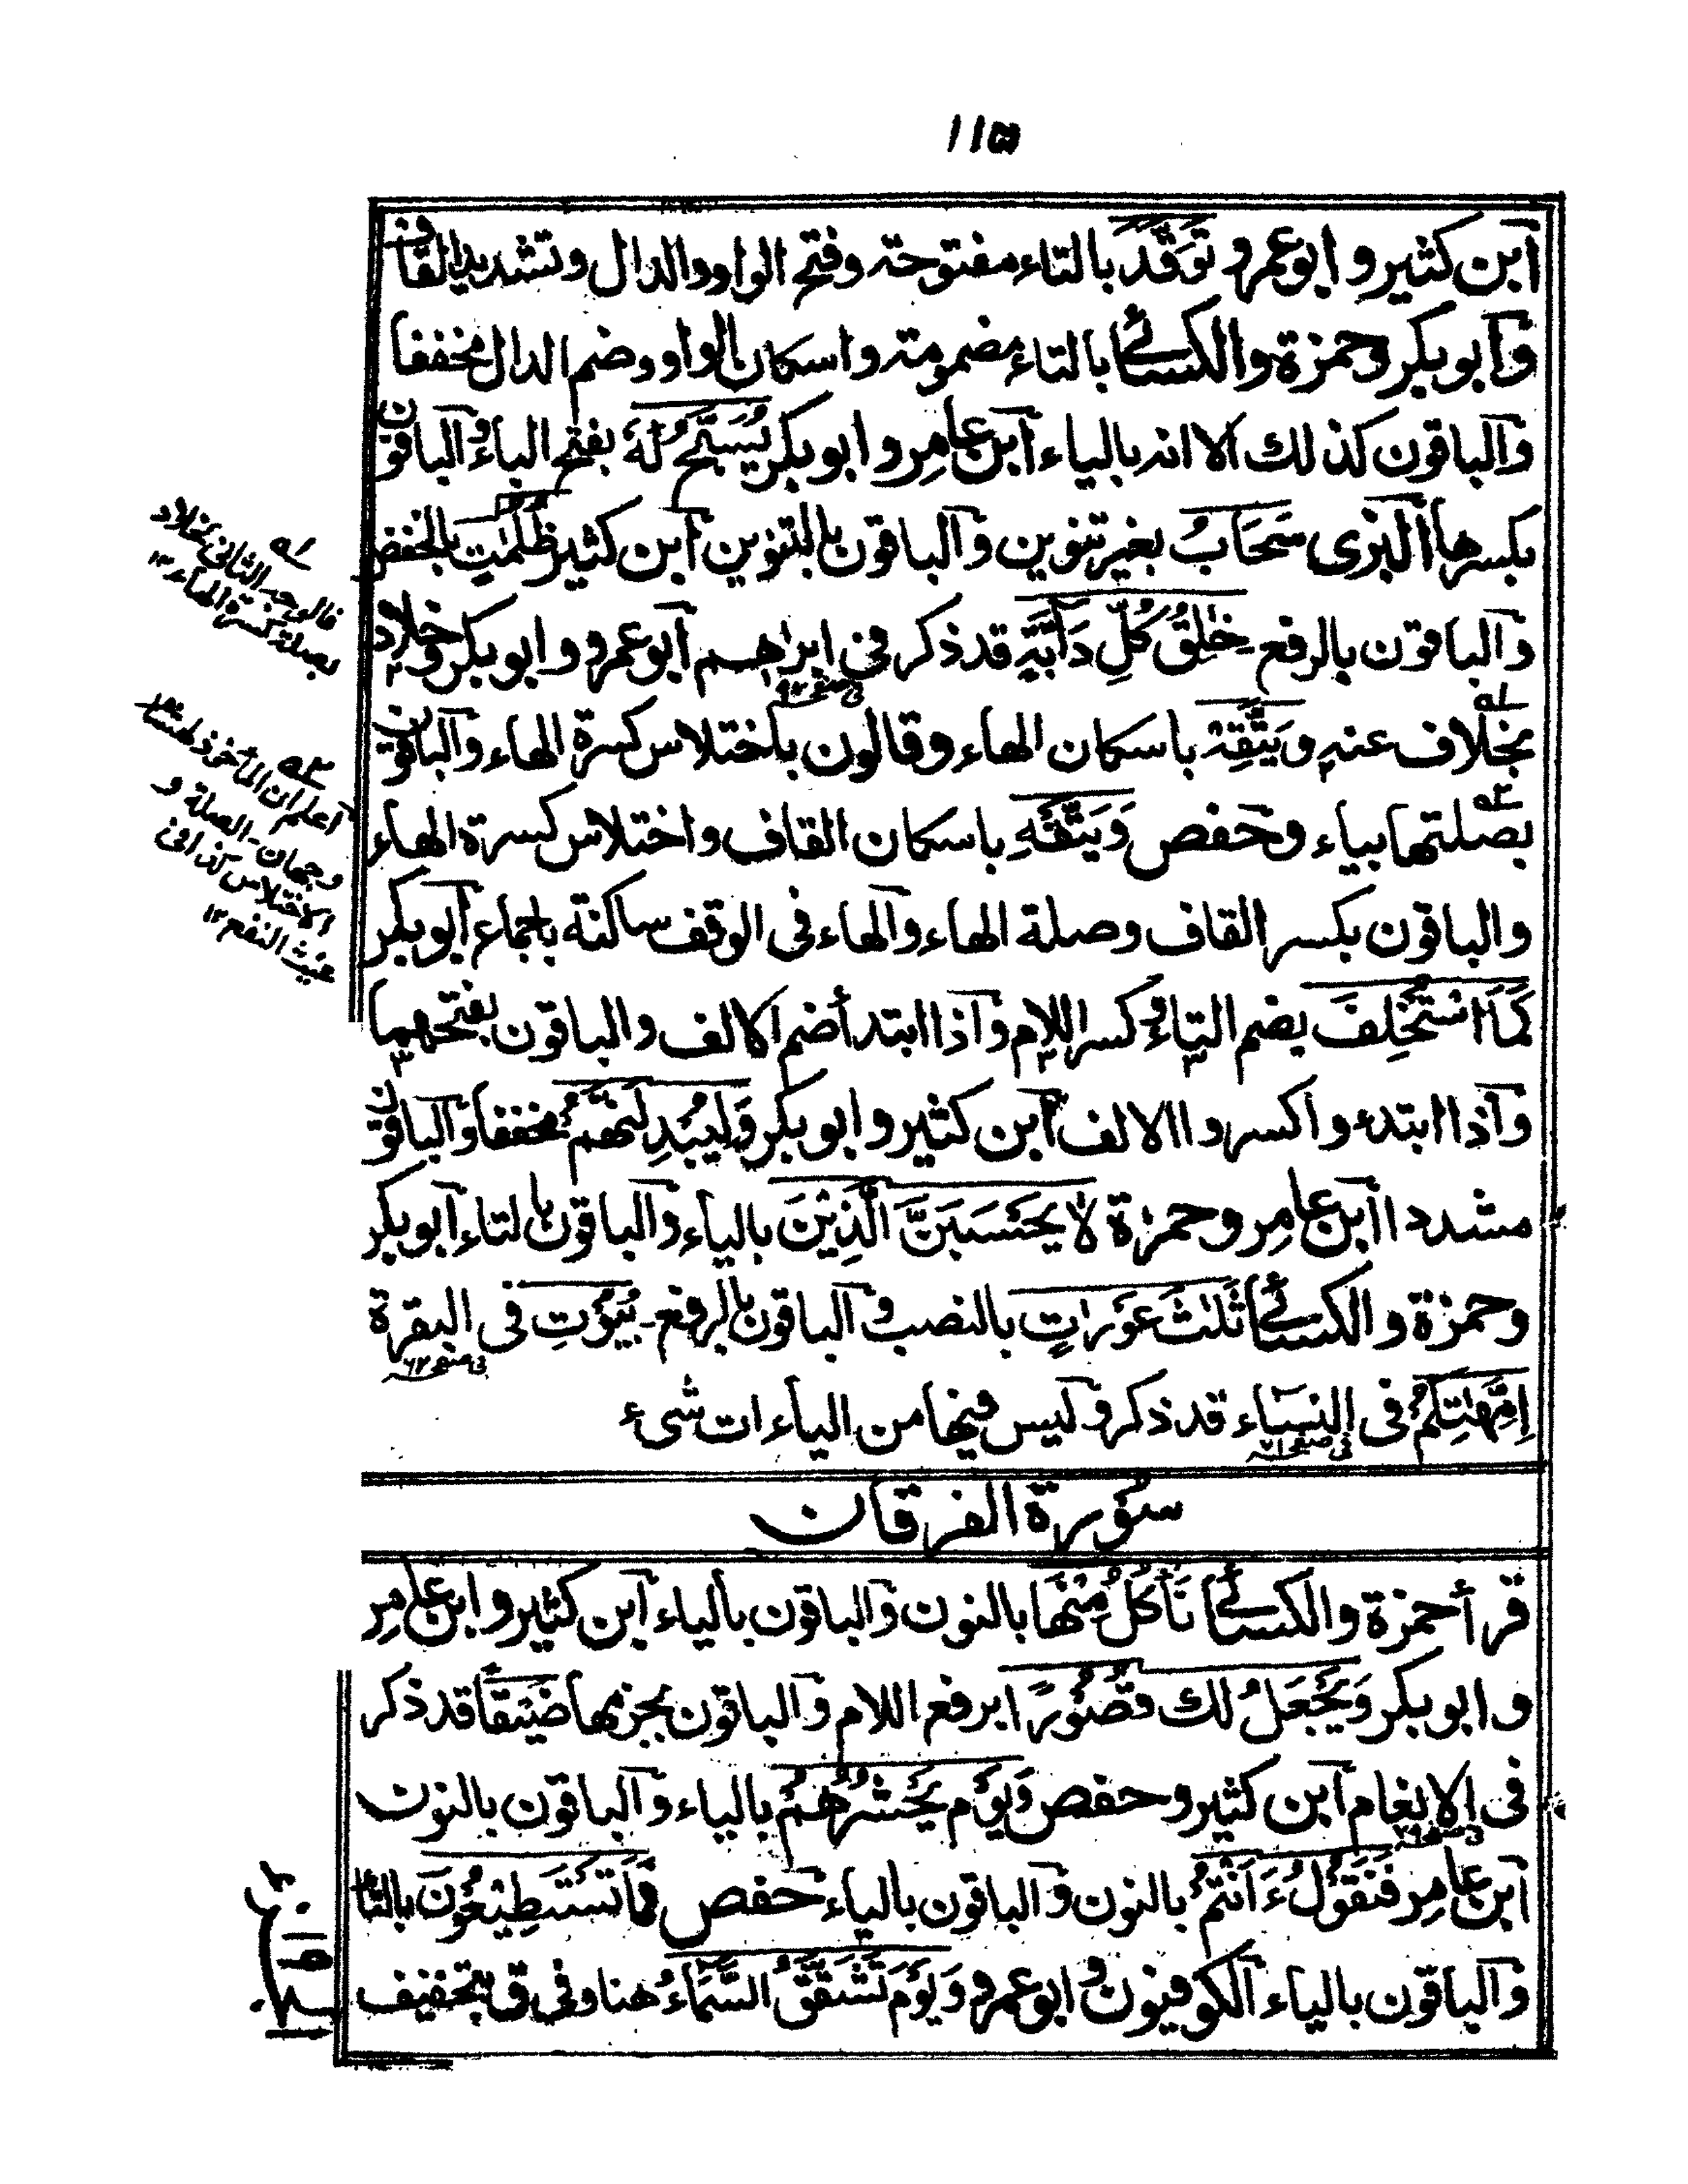 ١١۵
ابن كثير و ابو عمرو تَوَقَّدَ بالتاء مفتوحة و فتح الواو والدال و تشديد القاف
وابو بكر وحمزة والكسائى بالتاء مضمومة و اسكان الواو و ضم الدال مخففا
والباقون كذلك الا انه بالياء ابن عامر و ابو بكر يُسَبَّحُ لَهٗ بفتح الباء والباقون
بكسرها البزى سَحَابُ بغير تنوين والباقون بالتنوين ابن كثير ظُلُمٰتٍ بالخفض
والباقون بالرفع خٰلِقُ كُلِّ دَآبَّةٍ قد ذكر فى ابراهيم ابو عمرو و ابو بكر وخلاد
فى صفحہ ٩٢
بخلاف عنه وَيَتَّقِهْ باسكان الهاء و قالون باختلاس كسرة الهاء والباقون
بصلتها بياء و حفص وَيَتَّقْهِ باسكان القاف واختلاس كسرة الهاء
والباقون بكسر القاف وصلة الهاء والهاء فى الوقف ساكنة باجماع ابو بكر
كَمَا اسْتُخْلِفَ بضم التاء وكسر اللام واذا ابتدأ ضم الالف والباقون بفتحهما
واذا ابتدءوا كسروا الالف ابن كثير و ابو بكر وَلَيُبْدِلَنَّهُمْ مخففا والباقون
مشددا ابن عامر وحمزة لا يَحْسَبَنَّ الَّذِيْنَ بالياء والباقون بالتاء ابو بكر
وحمزة والكسائى ثَلٰثَ عَوْرٰتٍ بالنصب والباقون بالرفع۔ بُيُوْتِ فى البقرة
فى صفحہ ٦٢
اِمَّهٰتِكُمْ فى النساء قد ذكر وليس فيها من الياءات شىء
فى صفحہ ٧١
سورة الفرقان
قرأ حمزة والكسائى نَأْكُلُ مِنْهَا بالنون والباقون بالياء ابن كثير و ابن عامر
و ابو بكر وَيَجْعَلُ لك قُصُوْرًا برفع اللام والباقون بجزمها ضَيِّقًا قد ذكر
فى الانعام ابن كثير و حفص وَيَوْمَ يَحْشُرُهُمْ بالياء والباقون بالنون
فى صفحہ ٧٩
ابن عامر فَنَقُوْلُ ءَاَنْتُمْ بالنون والباقون بالياء حفص فَمَا تَسْتَطِيْعُوْنَ بالتاء
والباقون بالياء الكوفيون وابو عمرو وَيَوْمَ تَشَقَّقُ السَّمَآءُ هنا و فى ق بتخفيف
١ه
فالوجه الثانى لخلاد
بصلة كسرة الهاء ١٢
٢ه
اعلم ان المأخوذ لهشام
وجهان۔ الصلة و
الاختلاس كذا فى
غيث النفع ١٢